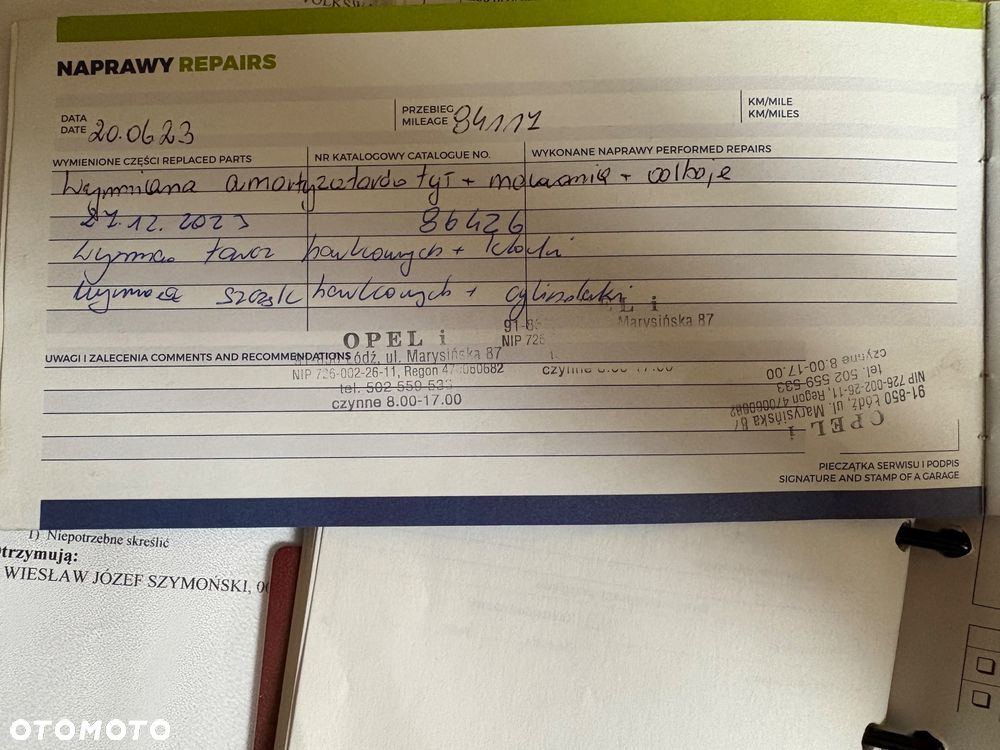 NAPRAWY REPAIRS
DATA
DATE 20.06.23
PRZEBIEG
MILEAGE 84117
KM/MILE
KM/MILES
WYMIENIONE CZĘŚCI REPLACED PARTS
NR KATALOGOWY CATALOGUE NO.
WYKONANE NAPRAWY PERFORMED REPAIRS
Wymiana amortyzatorów tył + mocowania + odboje
27.12.2023 86426
Wymiana tarcz hamkowych + klocki
Wymiana szczęk hamkowych + cylinderki
OPEL i
91-850 Łódź, ul. Marysińska 87
NIP 726-002-26-11, Regon 470060682
tel. 502 559 533
czynne 8.00-17.00
EL i
Marysińska 87
NIP 726
UWAGI I ZALECENIA COMMENTS AND RECOMMENDATIONS
OPEL i
91-850 Łódź, ul. Marysińska 87
NIP 726-002-26-11, Regon 470060682
tel. 502 559 533
czynne 8.00-17.00
PIECZĄTKA SERWISU I PODPIS
SIGNATURE AND STAMP OF A GARAGE
1) Niepotrzebne skreślić
trzymują:
WIESŁAW JÓZEF SZYMOŃSKI,
OTOMOTO